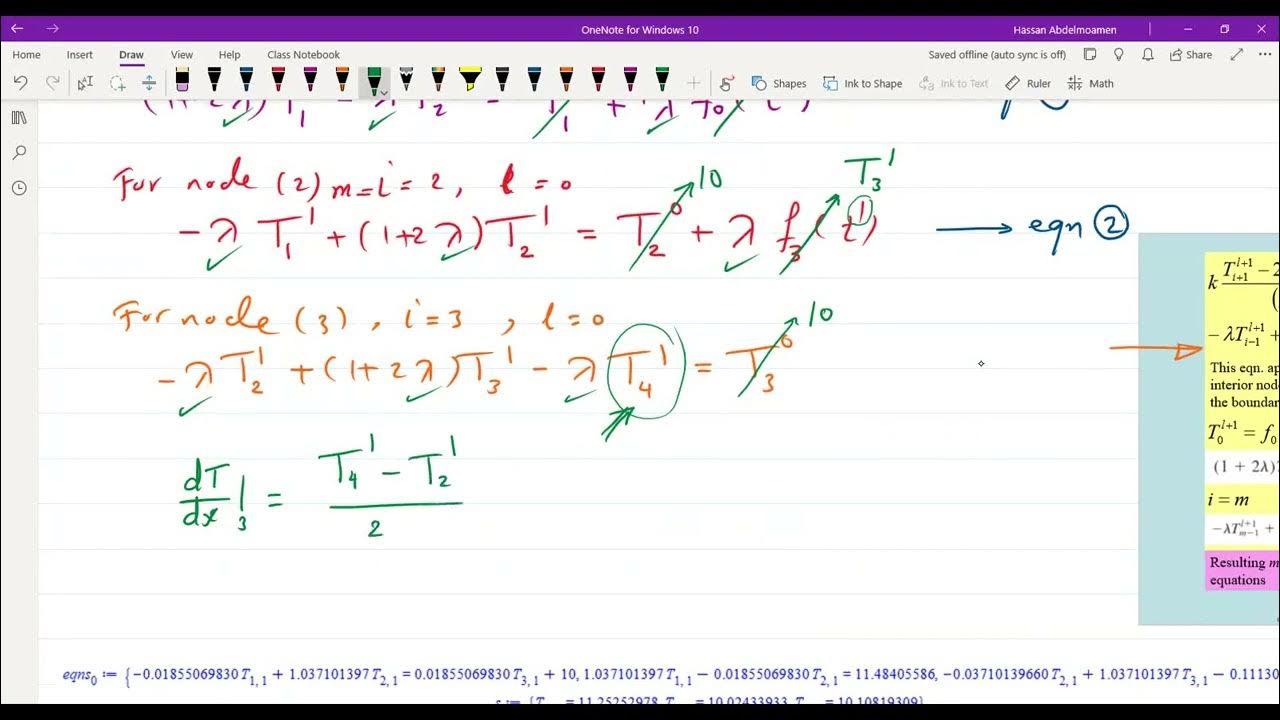 OneNote for Windows 10
Hassan Abdelmoamen
Home Insert Draw View Help Class Notebook
Saved offline (auto sync is off) Share
Shapes Ink to Shape Ink to Text Ruler Math
(1+2λ) T₁¹ - λ T₂¹ = T₁⁰ + λ f₀(t¹)
For node (2) m=i=2, l=0
T₃¹
10
-λ T₁¹ + (1+2λ) T₂¹ = T₂⁰ + λ f₃(t¹) → eqn ②
For node (3), i=3, l=0
10
-λ T₂¹ + (1+2λ) T₃¹ - λ T₄¹ = T₃⁰
dT/dx|₃ = (T₄¹ - T₂¹)/2
This eqn. ap
interior nod
the boundar
T₀ˡ⁺¹ = f₀
(1 + 2λ)
i = m
Resulting m
equations
eqns₀ := {-0.01855069830 T₁,₁ + 1.037101397 T₂,₁ = 0.01855069830 T₃,₁ + 10, 1.037101397 T₁,₁ - 0.01855069830 T₂,₁ = 11.48405586, -0.03710139660 T₂,₁ + 1.037101397 T₃,₁ - 0.11130